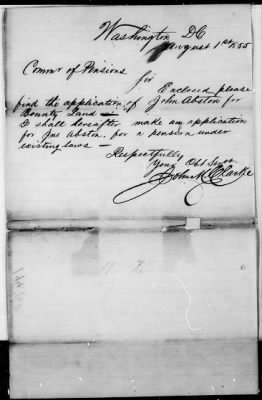 Washington DC
August 1st 1855
Commr of Pensions
Sir
Enclosed please
find the application of John Abston for
Bounty Land —
I shall hereafter make an application
for Jno Abston for a pension under
existing laws —
Respectfully
Your Obt Servt
John M Clarke